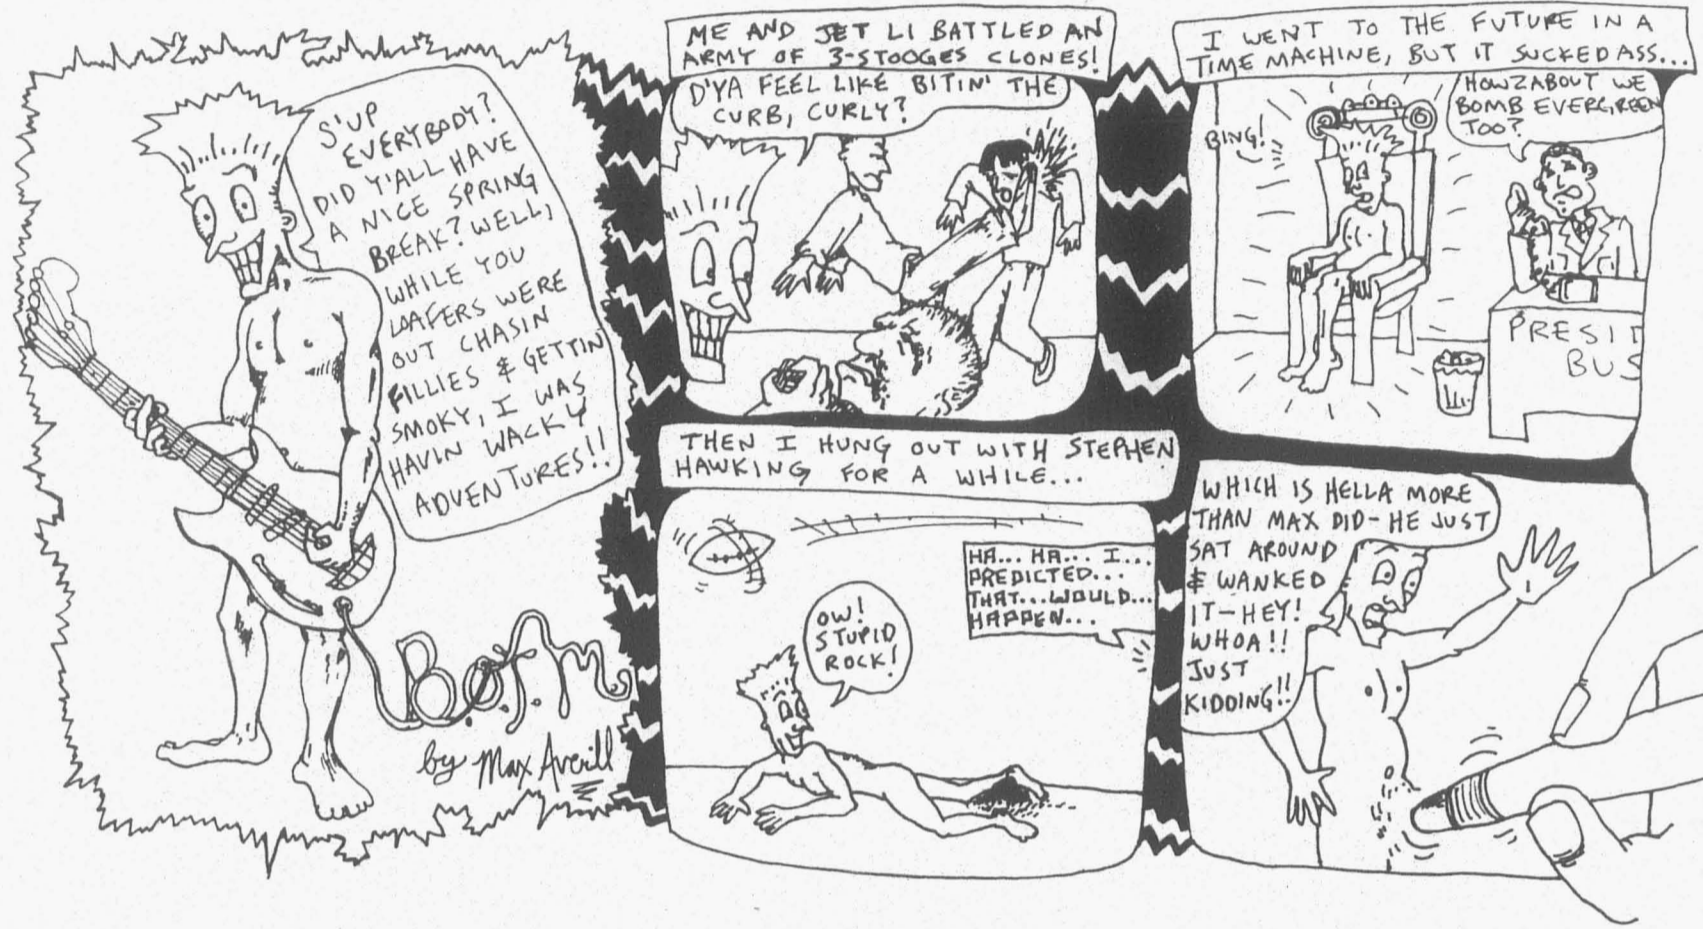 S'UP
EVERYBODY?
DID Y'ALL HAVE
A NICE SPRING
BREAK? WELL,
WHILE YOU
LOAFERS WERE
OUT CHASIN
FILLIES & GETTIN
SMOKY, I WAS
HAVIN WACKY
ADVENTURES!!
B.o.f.m
by Max Averill
ME AND JET LI BATTLED AN
ARMY OF 3-STOOGES CLONES!
D'YA FEEL LIKE BITIN' THE
CURB, CURLY?
I WENT TO THE FUTURE IN A
TIME MACHINE, BUT IT SUCKED ASS...
BING!
HOWZABOUT WE
BOMB EVERGREEN
TOO?
PRESID
BUS
THEN I HUNG OUT WITH STEPHEN
HAWKING FOR A WHILE...
OW!
STUPID
ROCK!
HA... HA... I...
PREDICTED...
THAT...WOULD...
HAPPEN...
WHICH IS HELLA MORE
THAN MAX DID- HE JUST
SAT AROUND
& WANKED
IT-HEY!
WHOA!!
JUST
KIDDING!!